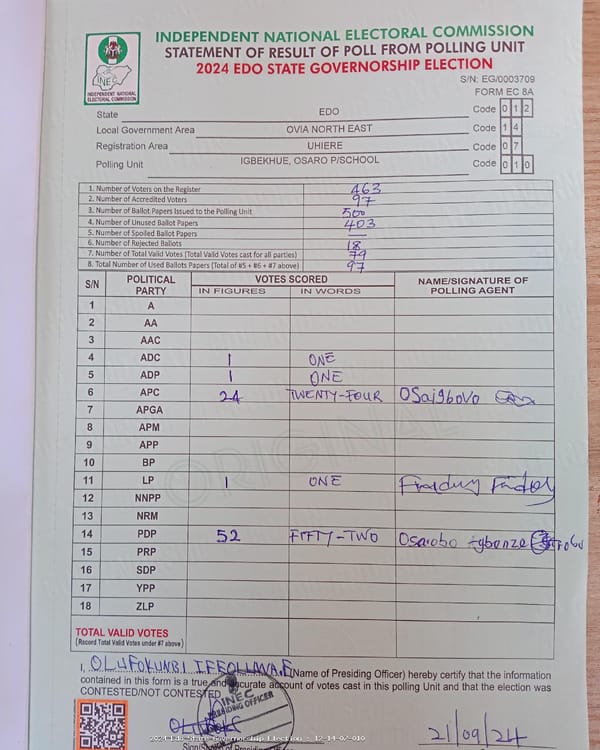 INDEPENDENT NATIONAL ELECTORAL COMMISSION
STATEMENT OF RESULT OF POLL FROM POLLING UNIT
2024 EDO STATE GOVERNORSHIP ELECTION
S/N: EG/0003709
FORM EC 8A
INEC
INDEPENDENT NATIONAL ELECTORAL COMMISSION
State EDO Code 0 1 2
Local Government Area OVIA NORTH EAST Code 1 4
Registration Area UHIERE Code 0 7
Polling Unit IGBEKHUE, OSARO P/SCHOOL Code 0 1 0
1. Number of Voters on the Register 463
2. Number of Accredited Voters 97
3. Number of Ballot Papers Issued to the Polling Unit 500
4. Number of Unused Ballot Papers 403
5. Number of Spoiled Ballot Papers —
6. Number of Rejected Ballots 18
7. Number of Total Valid Votes (Total Valid Votes cast for all parties) 79
8. Total Number of Used Ballots Papers (Total of #5 + #6 + #7 above) 97
S/N POLITICAL PARTY VOTES SCORED NAME/SIGNATURE OF POLLING AGENT
IN FIGURES IN WORDS
1 A
2 AA
3 AAC
4 ADC 1 ONE
5 ADP 1 ONE
6 APC 24 TWENTY-FOUR OSaigbovo
7 APGA
8 APM
9 APP
10 BP
11 LP 1 ONE
12 NNPP
13 NRM
14 PDP 52 FIFTY-TWO
15 PRP
16 SDP
17 YPP
18 ZLP
ORIGINAL
TOTAL VALID VOTES
(Record Total Valid Votes under #7 above)
I, (Name of Presiding Officer) hereby certify that the information
contained in this form is a true and accurate account of votes cast in this polling Unit and that the election was
CONTESTED/NOT CONTESTED
INEC
PRESIDING OFFICER
21/09/24
2024 Edo State Governorship Election : 12-14-07-010